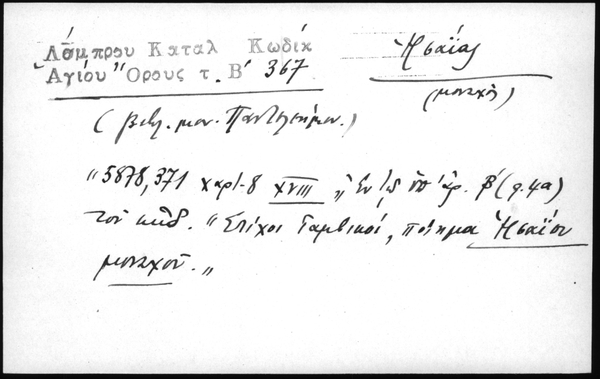 Λάμπρου Καταλ Κωδίκ
Ἁγίου Ὄρους τ. Β΄ 367
Ἡσαΐας
(μοναχός)
(βιβλ. μον. Παντελεήμον.)
"5878,371 χαρτ. 8 XVIII "Ἐν τῷ ὑπ' ἀρ. β' (φ. 4α)
τοῦ κωδ. "Στίχοι Ἰαμβικοί, ποίημα Ἡσαΐου
μοναχοῦ."